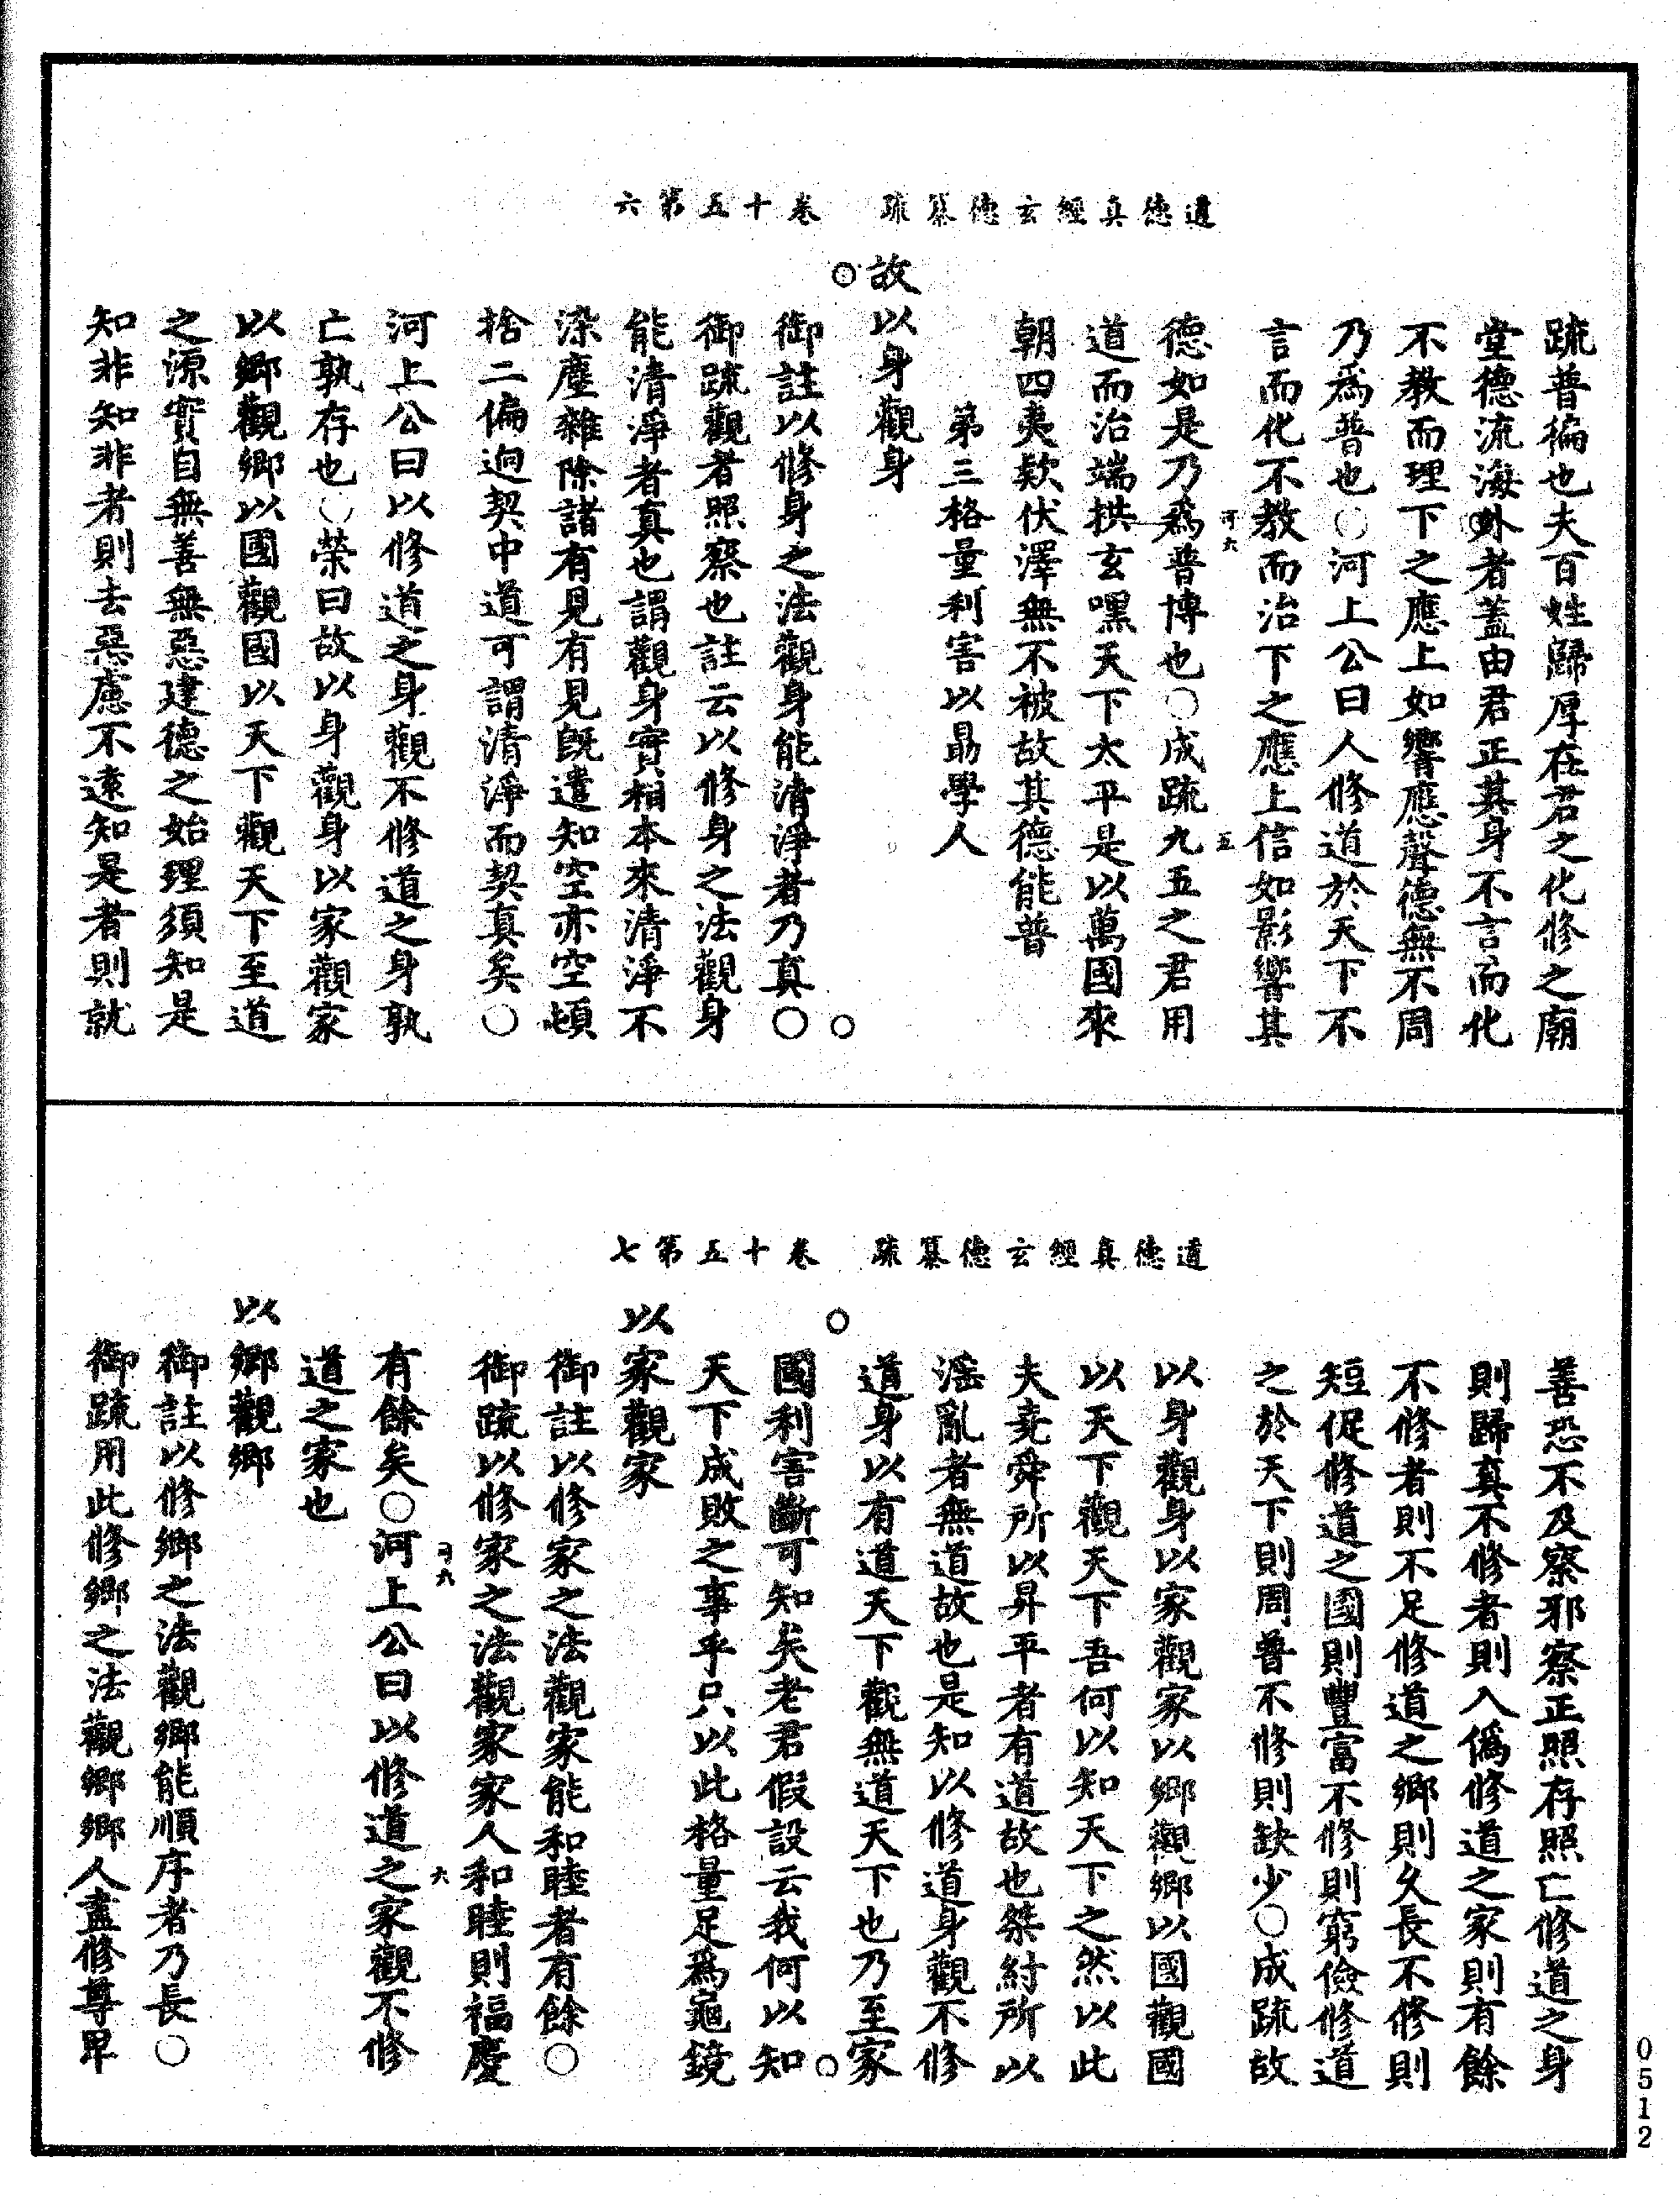 道德真經玄德纂疏　卷十五第六
疏普徧也夫百姓歸厚在君之化修之廟
堂德流海外者蓋由君正其身不言而化
不教而理下之應上如響應聲德無不周
乃爲普也○河上公曰人修道於天下不
言而化不教而治下之應上信如影響其
可六　五
德如是乃爲普博也○成疏九五之君用
道而治端拱玄嘿天下太平是以萬國來
朝四夷欵伏澤無不被故其德能普
第三格量利害以勗學人
故以身觀身
御註以修身之法觀身能清淨者乃真○
御疏觀者照察也註云以修身之法觀身
能清淨者真也謂觀身實相本來清淨不
染塵雜除諸有見有見旣遣知空亦空頓
捨二偏逈契中道可謂清淨而契真矣○
河上公曰以修道之身觀不修道之身孰
亡孰存也○榮曰故以身觀身以家觀家
以鄉觀鄉以國觀國以天下觀天下至道
之源實自無善無惡建德之始理須知是
知非知非者則去惡慮不遠知是者則就
道德真經玄德纂疏　卷十五第七
善恐不及察邪察正照存照亡修道之身
則歸真不修者則入僞修道之家則有餘
不修者則不足修道之鄉則久長不修則
短促修道之國則豐富不修則窮儉修道
之於天下則周普不修則缺少○成疏故
以身觀身以家觀家以鄉觀鄉以國觀國
以天下觀天下吾何以知天下之然以此
夫堯舜所以昇平者有道故也桀紂所以
滛亂者無道故也是知以修道身觀不修
道身以有道天下觀無道天下也乃至家
國利害斷可知矣老君假設云我何以知
天下成敗之事乎只以此格量足爲龜鏡
以家觀家
御註以修家之法觀家能和睦者有餘○
御疏以修家之法觀家家人和睦則福慶
可六　六
有餘矣○河上公曰以修道之家觀不修
道之家也
以鄉觀鄉
御註以修鄉之法觀鄉能順序者乃長○
御疏用此修鄉之法觀鄉鄉人盡修尊卑
0512